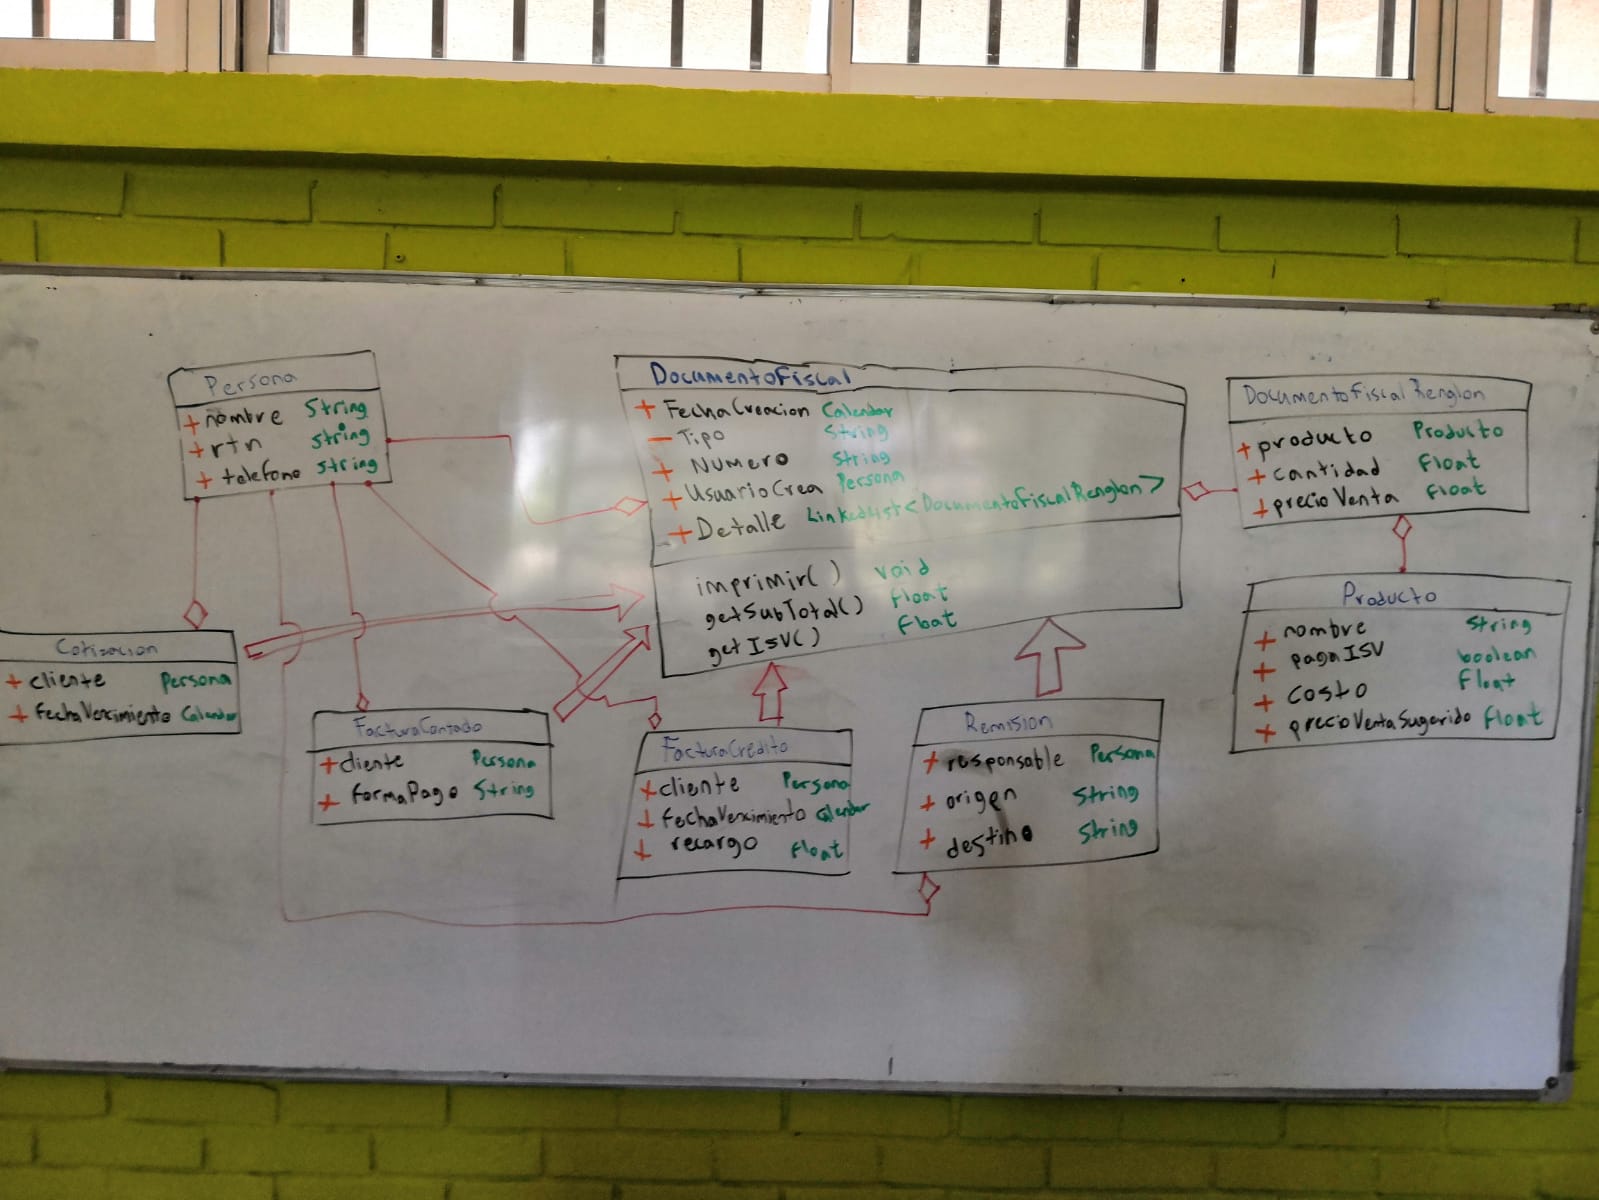 Persona
+ nombre String
+ rtn String
+ telefono String
DocumentoFiscal
+ FechaCreacion Calendar
- Tipo String
+ Numero String
+ UsuarioCrea Persona
+ Detalle LinkedList<DocumentoFiscalRenglon>
imprimir() void
getSubTotal() float
getISV() float
DocumentoFiscalRenglon
+ producto Producto
+ cantidad float
+ precioVenta float
Producto
+ nombre String
+ pagaISV boolean
+ costo float
+ precioVentaSugerido float
Cotizacion
+ cliente Persona
+ fechaVencimiento Calendar
FacturaContado
+ cliente Persona
+ formaPago String
FacturaCredito
+ cliente Persona
+ fechaVencimiento Calendar
+ recargo float
Remision
+ responsable Persona
+ origen String
+ destino String